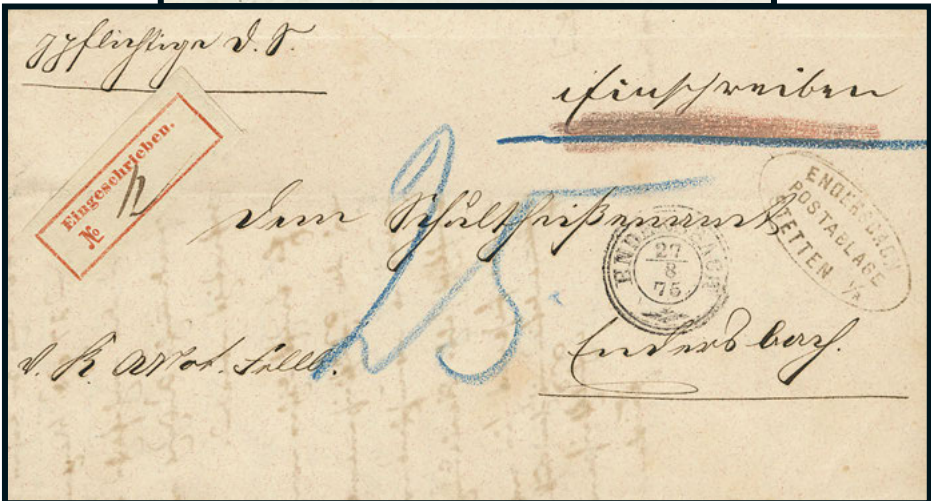 pflichtige D. S.
Einschreiben
Eingeschrieben.
№
25
ENDERSBACH
POSTABLAGE
STETTEN
Dem Schultheißenamt
ENDERSBACH
27
8
75
Endersbach.
v. K.